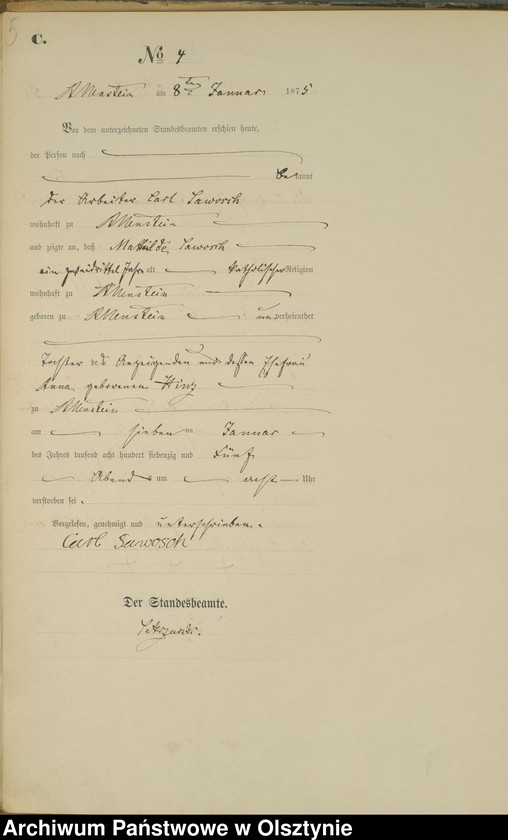 5
C.
No 4
Allenstein am 8ten Januar 1875
Vor dem unterzeichneten Standesbeamten erschien heute,
der Person nach
bekannt
der Arbeiter Carl Saworsch
wohnhaft zu Allenstein
und zeigte an, daß Mathilde Saworsch
ein zweidrittel Jahr alt katholischer Religion
wohnhaft zu Allenstein
geboren zu Allenstein unverheirathet
Tochter des Anzeigenden und dessen Ehefrau
Anna geborenen Hinz
zu Allenstein
am sieben ten Januar
des Jahres tausend acht hundert siebenzig und fünf
Abends um acht Uhr
verstorben sei.
Vorgelesen, genehmigt und unterschrieben.
Carl Sawosch
Der Standesbeamte.